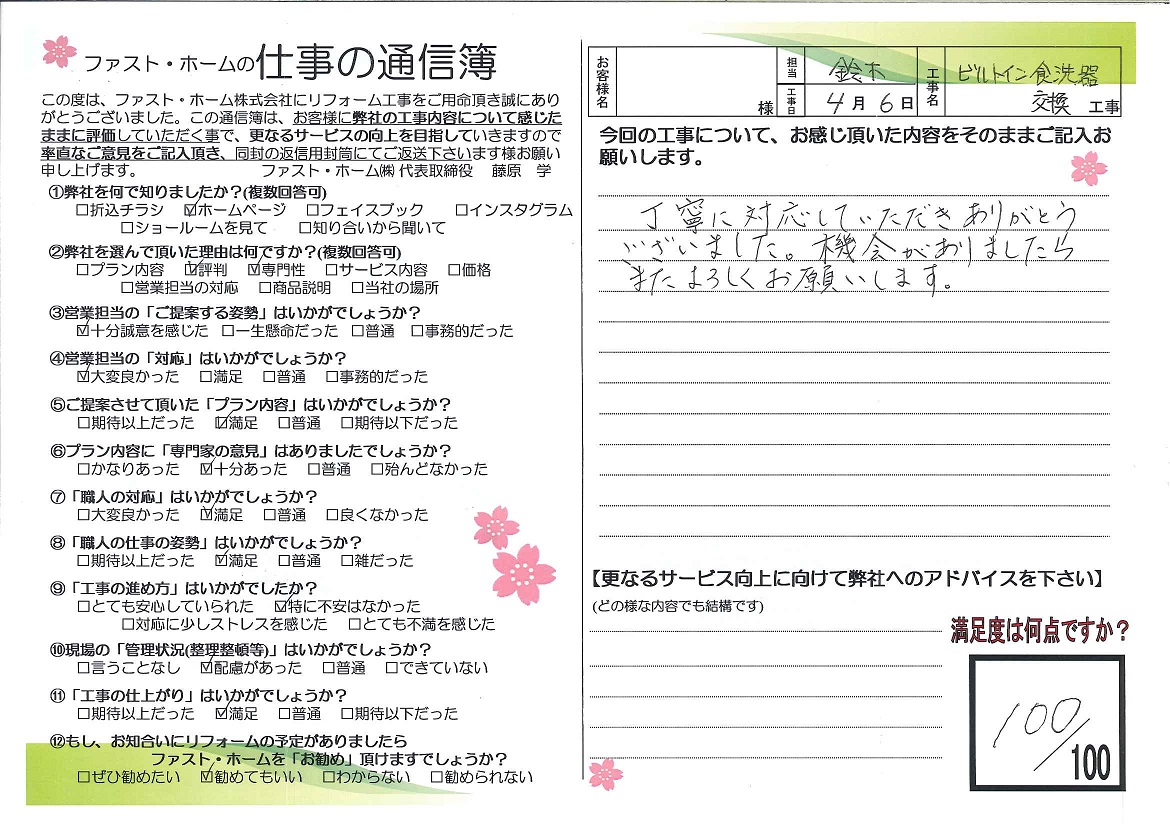 ファスト・ホームの仕事の通信簿
この度は、ファスト・ホーム株式会社にリフォーム工事をご用命頂き誠にあり
がとうございました。この通信簿は、お客様に弊社の工事内容について感じた
ままに評価していただく事で、更なるサービスの向上を目指していきますので
率直なご意見をご記入頂き、同封の返信用封筒にてご返送下さいます様お願い
申し上げます。 ファスト・ホーム㈱ 代表取締役 藤原 学
①弊社を何で知りましたか?(複数回答可)
□折込チラシ ☑ホームページ □フェイスブック □インスタグラム
□ショールームを見て □知り合いから聞いて
②弊社を選んで頂いた理由は何ですか?(複数回答可)
□プラン内容 ☑評判 ☑専門性 □サービス内容 □価格
□営業担当の対応 □商品説明 □当社の場所
③営業担当の「ご提案する姿勢」はいかがでしょうか?
☑十分誠意を感じた □一生懸命だった □普通 □事務的だった
④営業担当の「対応」はいかがでしょうか?
☑大変良かった □満足 □普通 □事務的だった
⑤ご提案させて頂いた「プラン内容」はいかがでしょうか?
□期待以上だった ☑満足 □普通 □期待以下だった
⑥プラン内容に「専門家の意見」はありましたでしょうか?
□かなりあった ☑十分あった □普通 □殆んどなかった
⑦「職人の対応」はいかがでしょうか?
□大変良かった ☑満足 □普通 □良くなかった
⑧「職人の仕事の姿勢」はいかがでしょうか?
□期待以上だった ☑満足 □普通 □雑だった
⑨「工事の進め方」はいかがでしたか?
□とても安心していられた ☑特に不安はなかった
□対応に少しストレスを感じた □とても不満を感じた
⑩現場の「管理状況(整理整頓等)」はいかがでしょうか?
□言うことなし ☑配慮があった □普通 □できていない
⑪「工事の仕上がり」はいかがでしょうか?
□期待以上だった ☑満足 □普通 □期待以下だった
⑫もし、お知合いにリフォームの予定がありましたら
ファスト・ホームを「お勧め」頂けますでしょうか?
□ぜひ勧めたい ☑勧めてもいい □わからない □勧められない
お客様名 様
担当 鈴木
工事日 4月6日
工事名 ビルトイン食洗器
交換 工事
今回の工事について、お感じ頂いた内容をそのままご記入お
願いします。
丁寧に対応していただきありがとう
ございました。機会がありましたら
またよろしくお願いします。
【更なるサービス向上に向けて弊社へのアドバイスを下さい】
(どの様な内容でも結構です)
満足度は何点ですか?
100/100